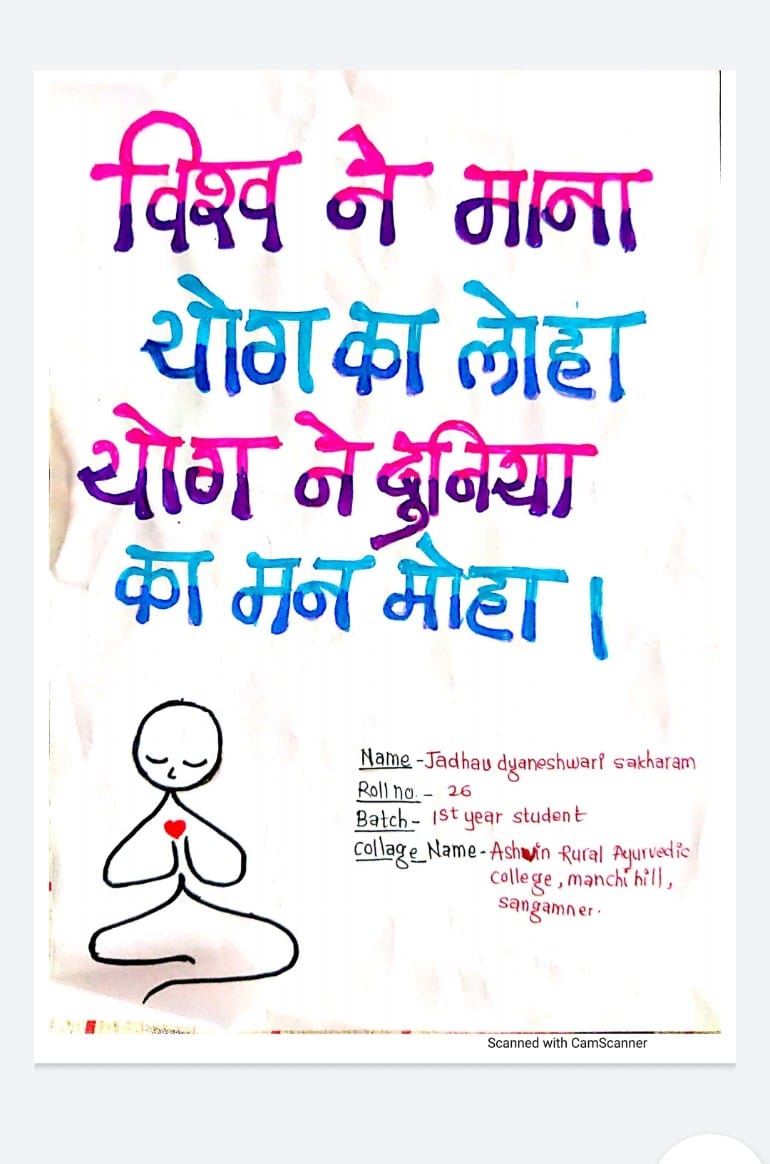 विश्व ने माना
योग का लोहा
योग ने दुनिया
का मन मोहा।
Name - Jadhav dyaneshwari sakharam
Roll no. - 26
Batch - 1st year student
Collage Name - Ashvin Rural Ayurvedic
college, manchi hill,
sangamner.
Scanned with CamScanner